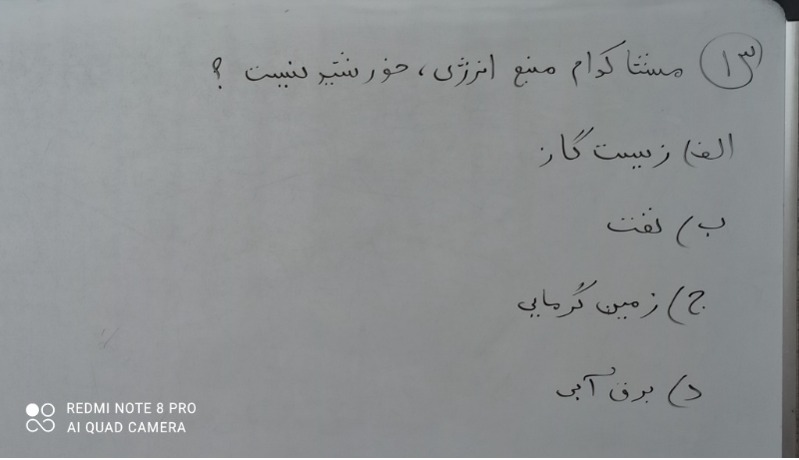 ۱۳) منشا کدام منبع انرژی، خورشید نیست ؟
الف) زیست گاز
ب) نفت
ج) زمین گرمایی
د) برق آبی
REDMI NOTE 8 PRO
AI QUAD CAMERA